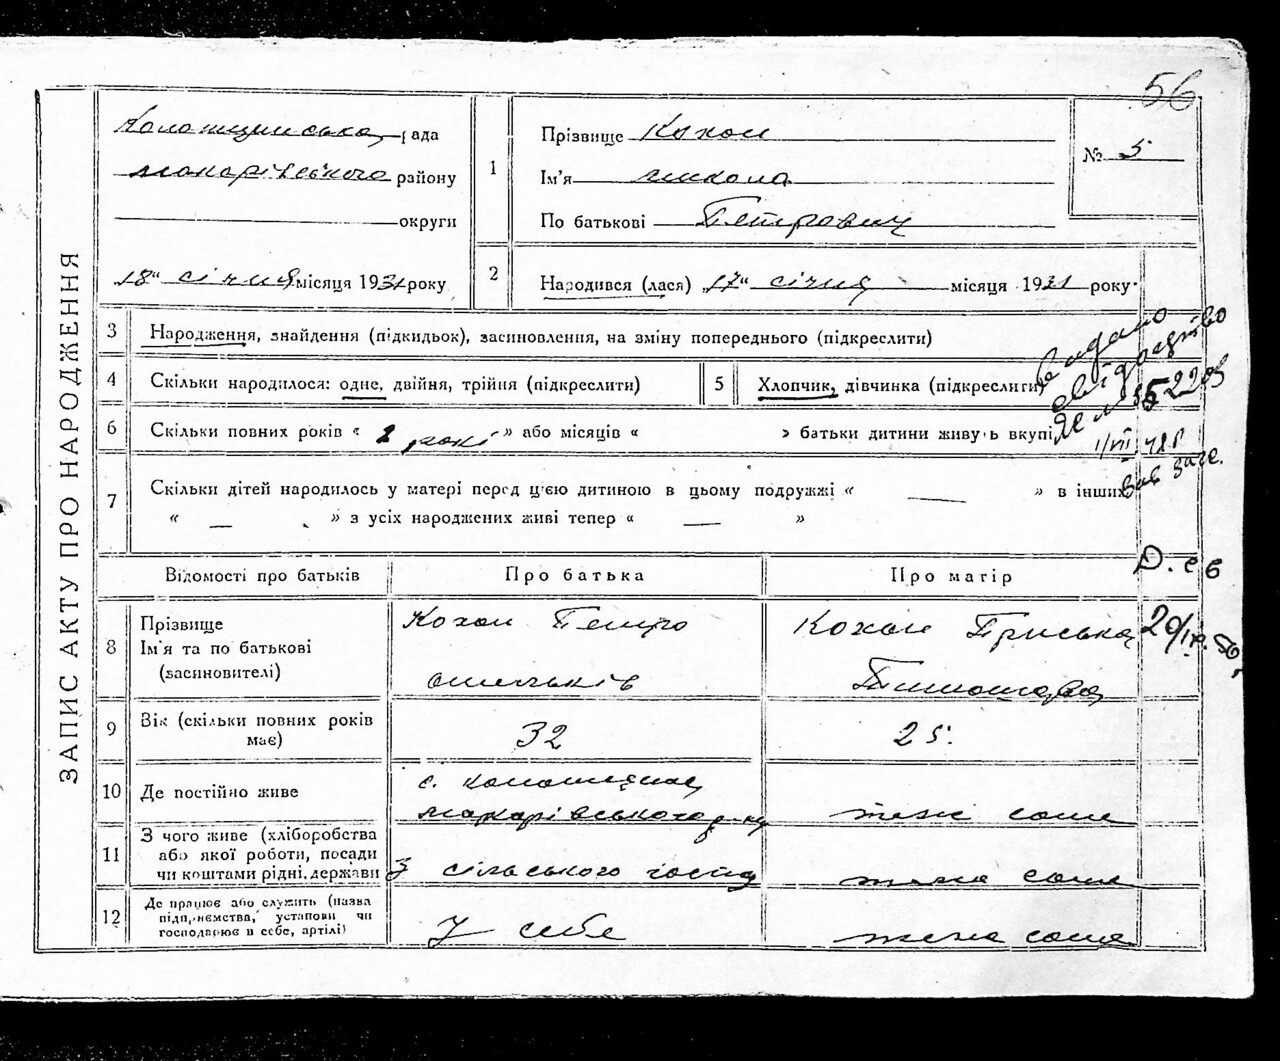 56
ЗАПИС АКТУ ПРО НАРОДЖЕННЯ
Колонщинська рада
Макарівського району
округи
„18“ січня місяця 1931 року
1
Прізвище Кохан
Ім'я Микола
По батькові Петрович
№ 5
2
Народився (лася) „17“ січня місяця 1931 року
3 Народження, знайдення (підкидьок), засиновлення, на зміну попереднього (підкреслити)
4 Скільки народилося: одне, двійня, трійня (підкреслити)
5 Хлопчик, дівчинка (підкреслити)
6 Скільки повних років « 2 рокі » або місяців « » батьки дитини живуть вкупі
7 Скільки дітей народилось у матері перед цією дитиною в цьому подружжі « — » в інших
« — » з усіх народжених живі тепер « — »
Видано
свідоцтво
Відомості про батьків
Про батька
Про матір
8 Прізвище
Ім'я та по батькові
(засиновителі)
Кохан Петро
Кохан Приська
Тимошова
9 Вік (скільки повних років
має)
32
25.
10 Де постійно живе
с. Колонщина
Макарівського р-ну
теж саме
11 З чого живе (хліборобства
або якої роботи, посади
чи коштами рідні, держави
З сільського госпд
теж саме
12 Де працює або служить (назва
підприємства, установи чи
господарює в себе, артілі)
У себе
теж саме